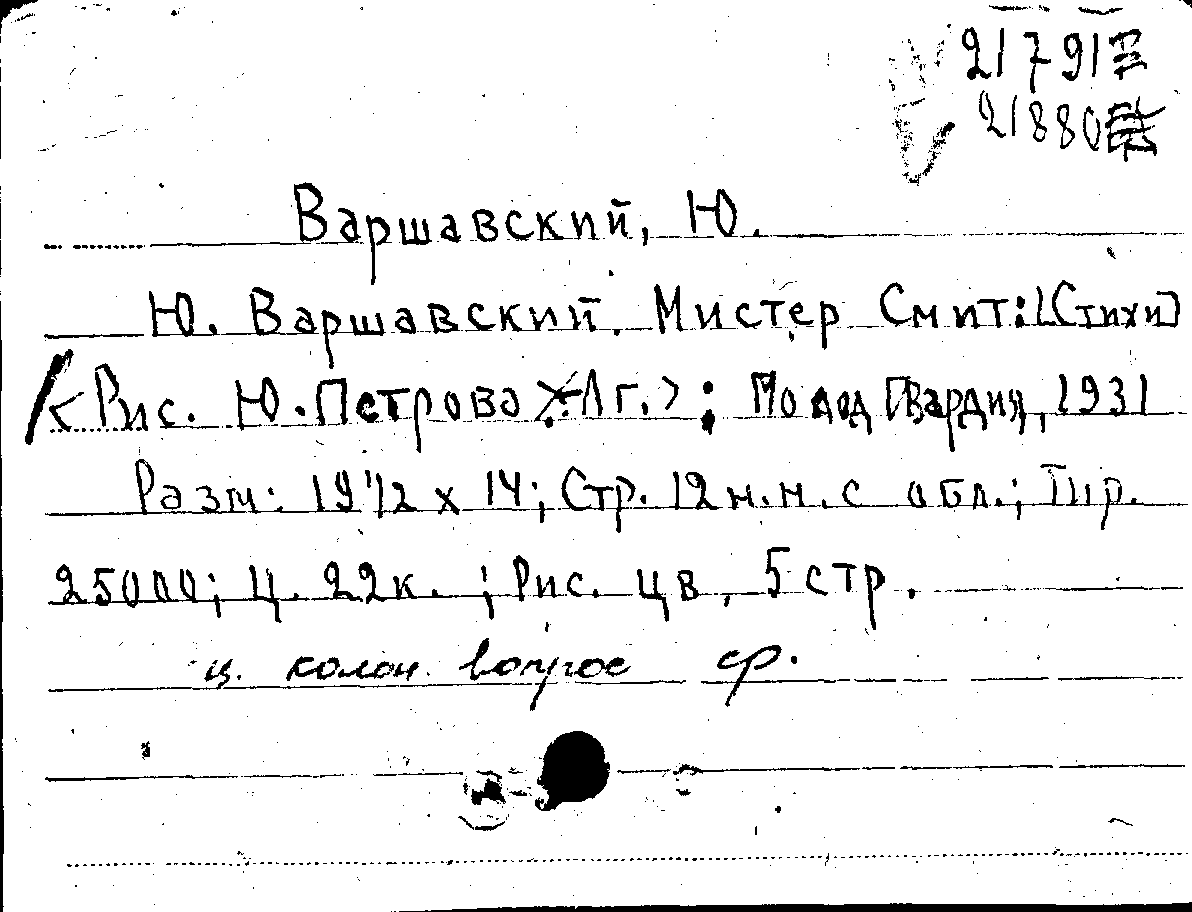 21791
21880
Варшавский, Ю.
Ю. Варшавский. Мистер Смит: [Стихи]
<Рис. Ю. Петрова г.>; Молод Гвардия, 1931
Разм: 19 1/2 х 14; Стр. 12 н.н. с обл.; Тир.
25000; Ц. 22к.; Рис. цв, 5 стр.
ц. колон. вопрос ср.